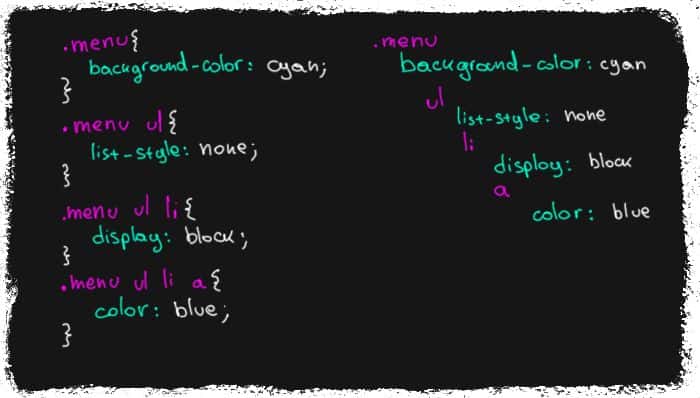 .menu{
background-color: cyan;
}
.menu ul{
list-style: none;
}
.menu ul li{
display: block;
}
.menu ul li a{
color: blue;
}
.menu
background-color: cyan
ul
list-style: none
li
display: block
a
color: blue